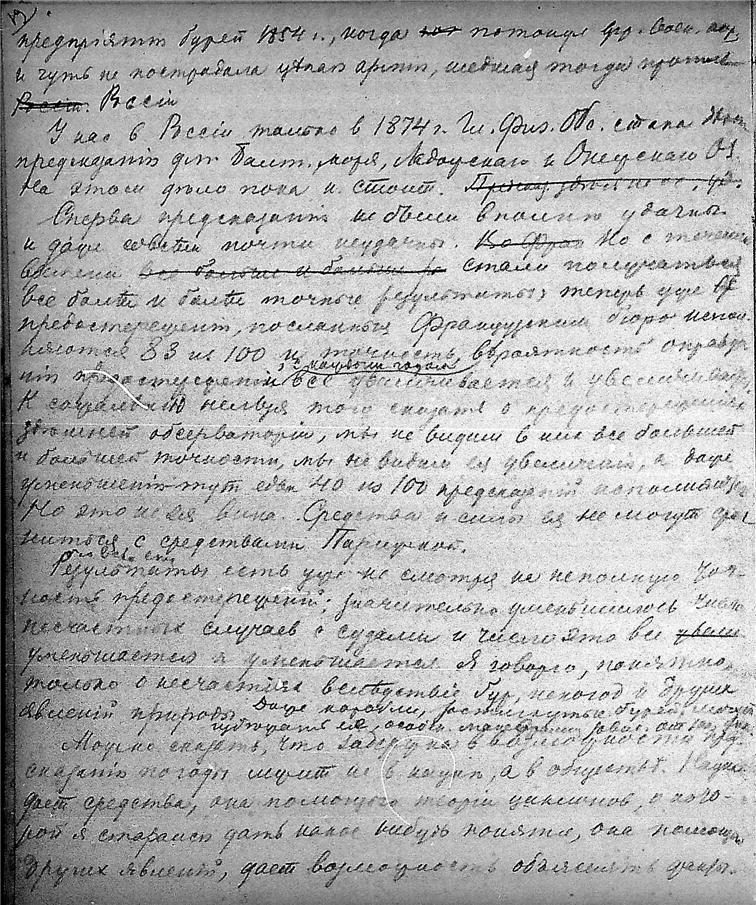 предпріятт бурей 1854 г., когда ~~тот~~ потонул
и чуть не пострадала цѣлая армія, шедшая тогда против
~~Россіи~~. Россіи
У нас в Россіи только в 1874 г. Гл. Физ. Обс. стала
предсказанія для Балт. моря, Ладожскаго и Онежскаго Оз.
На этом дѣло пока и стоит.
Сперва предсказанія не были вполнѣ удачны
и даже совсѣм почти неудачны. Но с теченіем
времени ~~все больше и больше~~ стали получаться
все болѣе и болѣе точные результаты; теперь уже
предостережения, посланныя Французским бюро испол
няются 83 из 100 и точность, вѣроятность оправда
нія предостережений с каждым годом все увеличивается и увеличивается
К сожалѣнію нельзя того сказать о предостереженіях
здѣшней обсерваторіи, мы не видим в них все большей
и большей точности, мы не видим ея увеличенія, а даже
уменьшеніе тут едва 40 из 100 предсказаній исполняется
Но это не ея вина. Средства и силы ея не могут срав
ниться с средствами Парижской.
Результаты есть уже не смотря на неполную точ-
ность предостережений; значительно уменьшилось число
несчастных случаев с судами и число это все
уменьшается и уменьшается Я говорю, понятно,
только о несчастіях вслѣдствіе бур, непогод и других
явлений природы. Даже корабли, застигнутые бурей
Можно сказать, что задержка в возможности пред
сказанія погоды лежит не в науке, а в обществѣ. Наука
дает средства, она помощью теоріи циклонов, о кото-
рой я старался дать какое нибудь понятіе, она помощью
других явлений, дает возможность объяснять